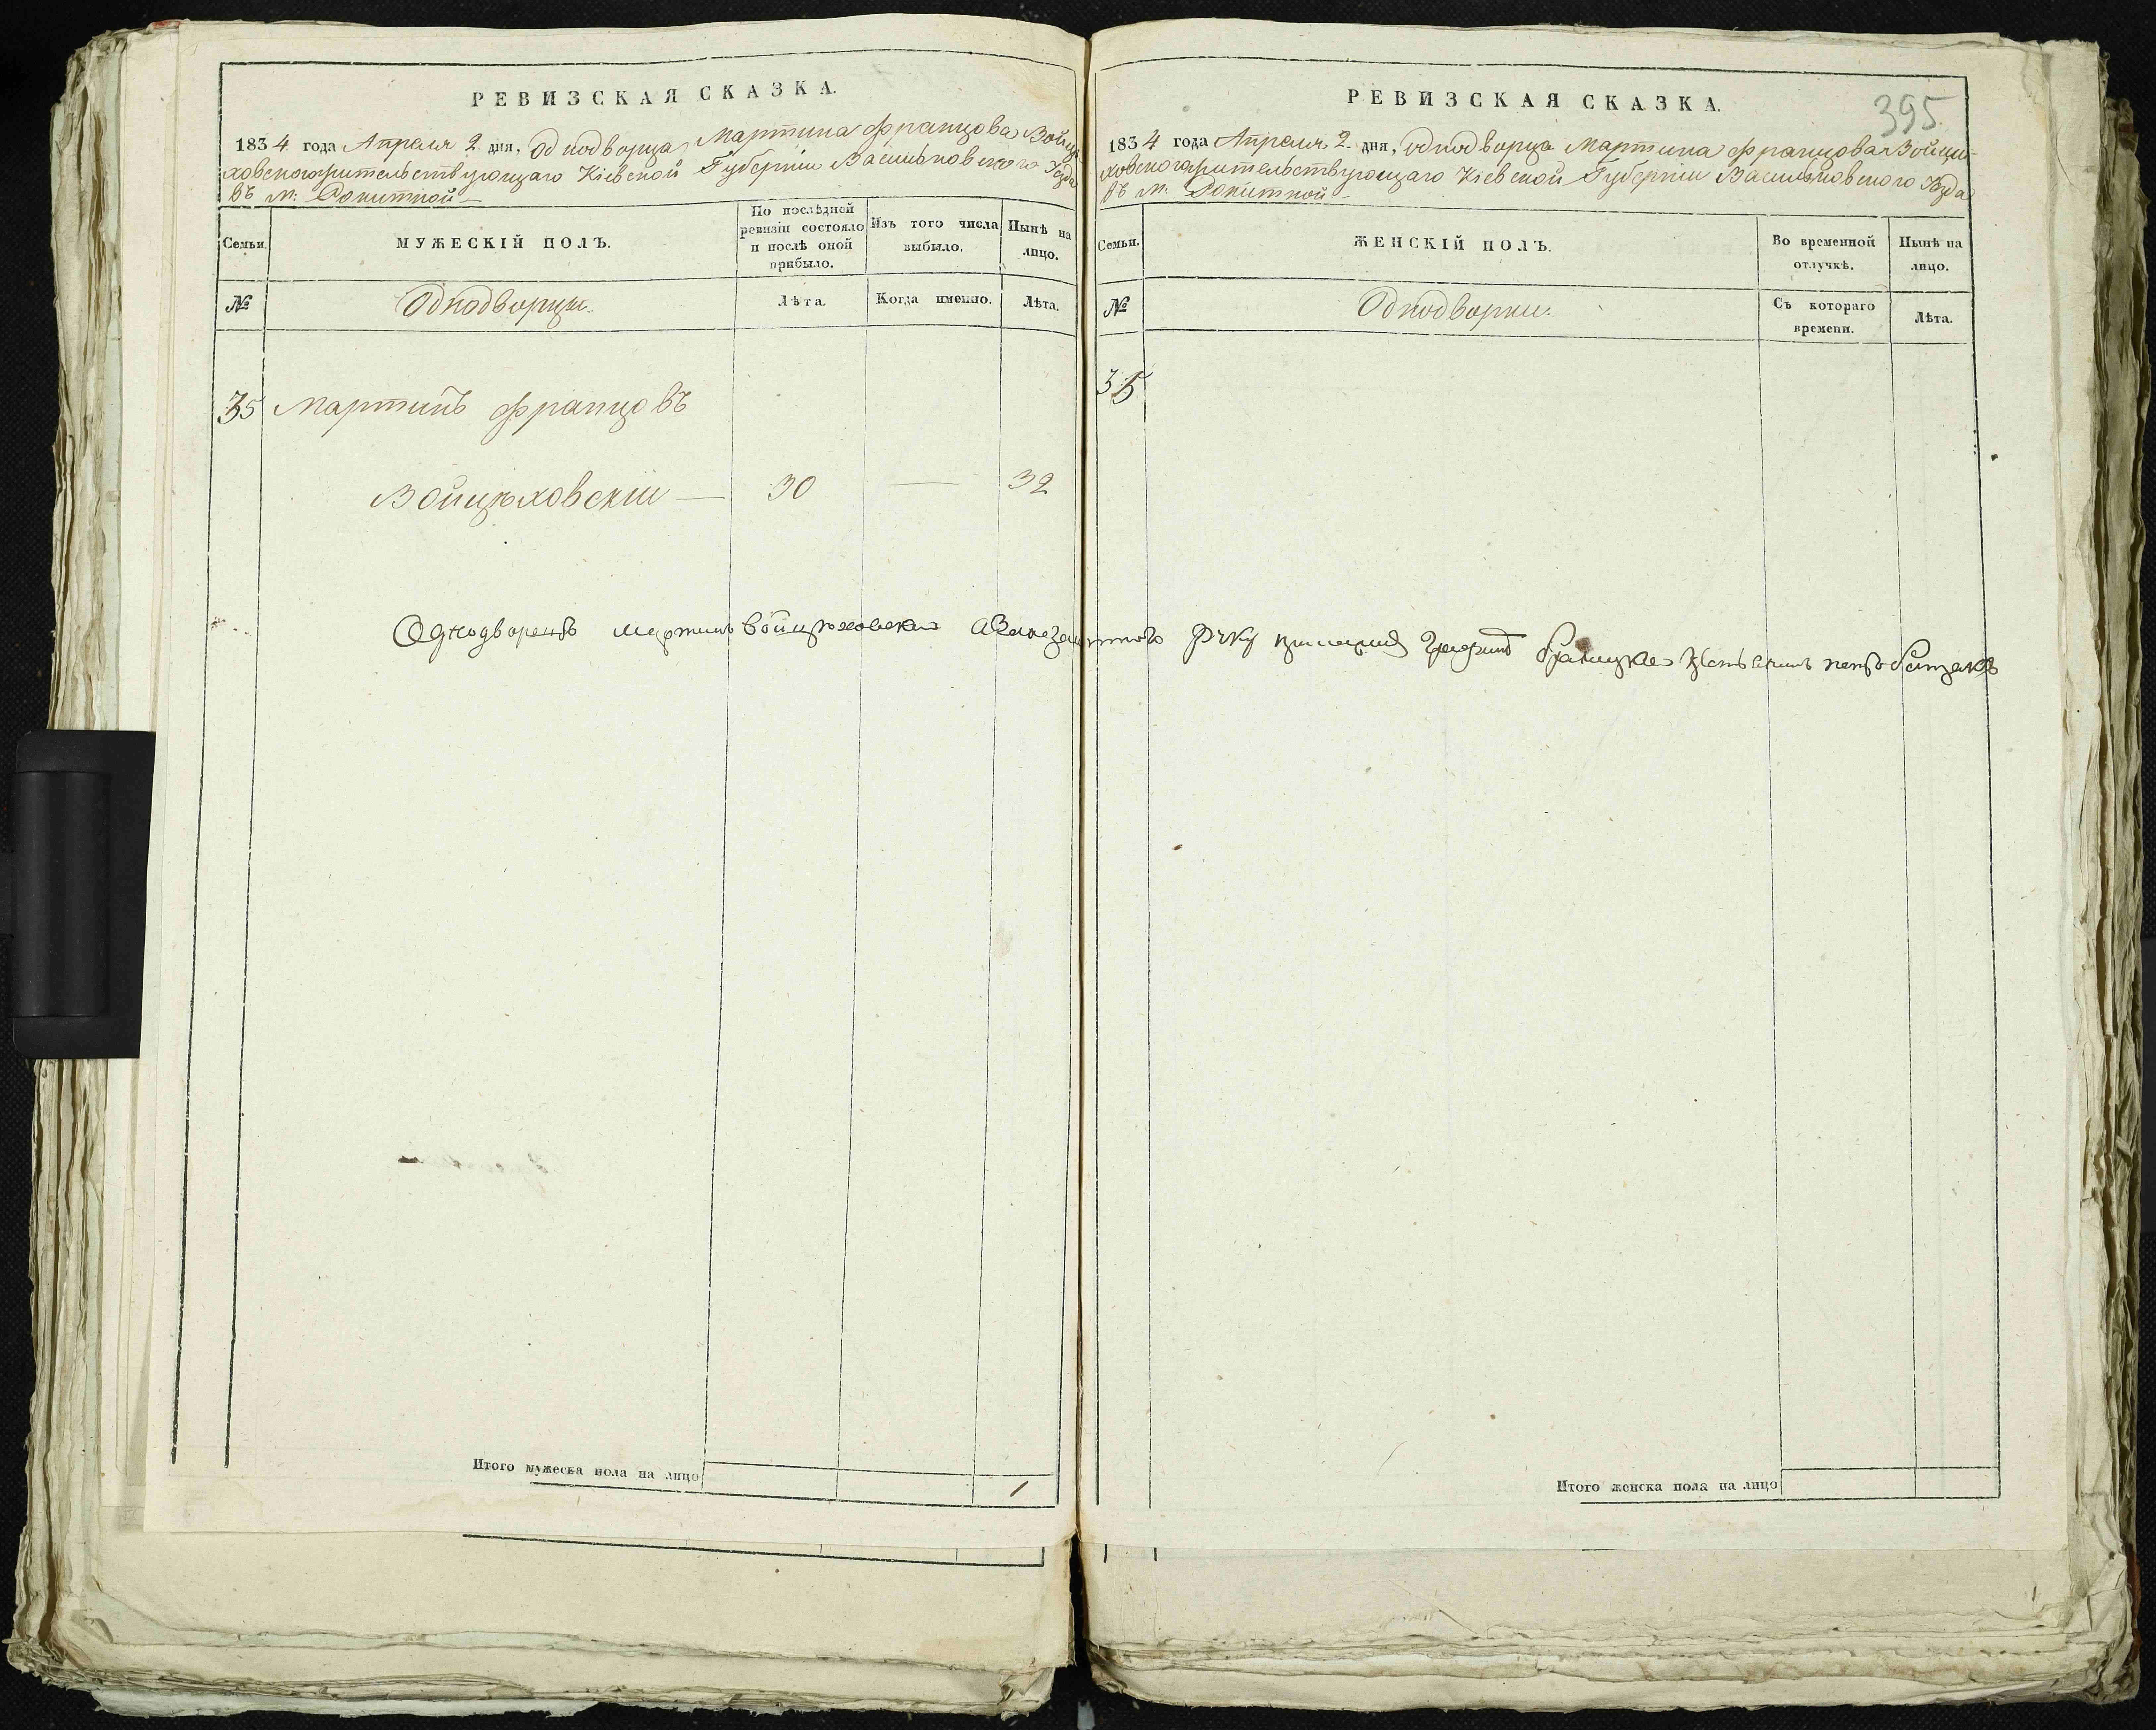 РЕВИЗСКАЯ СКАЗКА.
1834 года Апреля 2 дня, Однодворца Мартина Францова Войцѣ-
ховскогожительствующаго Кіевской Губерніи Васильковского Уѣзда
въ м: Рокитной
Семьи.
МУЖЕСКІЙ ПОЛЪ.
По послѣдней ревизіи состояло и послѣ оной прибыло.
Изъ того числа выбыло.
Нынѣ на лицо.
№
Однодворцы.
Лѣта.
Когда именно.
Лѣта.
35 Мартинъ Францовъ
Войцѣховскій — 30 — 32
Итого мужеска пола на лицо 1
395
РЕВИЗСКАЯ СКАЗКА.
1834 года Апреля 2 дня, Однодворца Мартина Францова Войци-
ховскогожительствующаго Кіевской Губерніи Васильковского Уѣзда
въ м. Рокитной
Семьи.
ЖЕНСКІЙ ПОЛЪ.
Во временной отлучкѣ.
Нынѣ на лицо.
№
Однодворки.
Съ котораго времени.
Лѣта.
35
Однодворецъ Мартинъ Войцѣховский
Итого женска пола на лицо